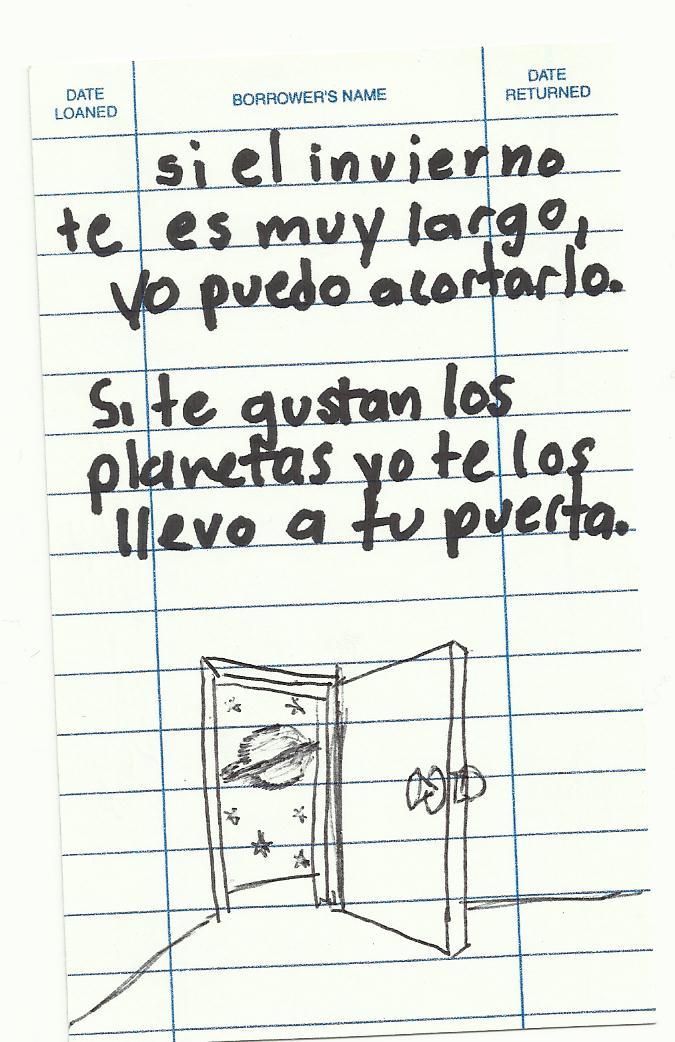 DATE LOANED
BORROWER'S NAME
DATE RETURNED
si el invierno
te es muy largo,
yo puedo acortarlo.
Si te gustan los
planetas yo te los
llevo a tu puerta.